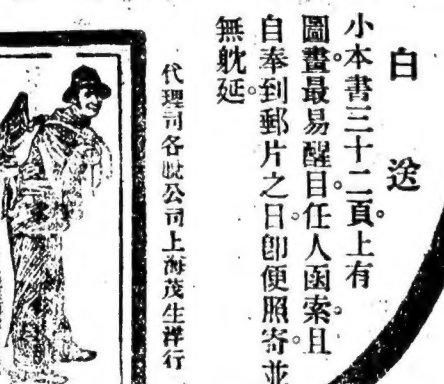 白送
小本書三十二頁。上有
圖畫最易醒目。任人函索。且
自奉到郵片之日。卽便照寄。並
無躭延。
代理司各脫公司上海茂生洋行